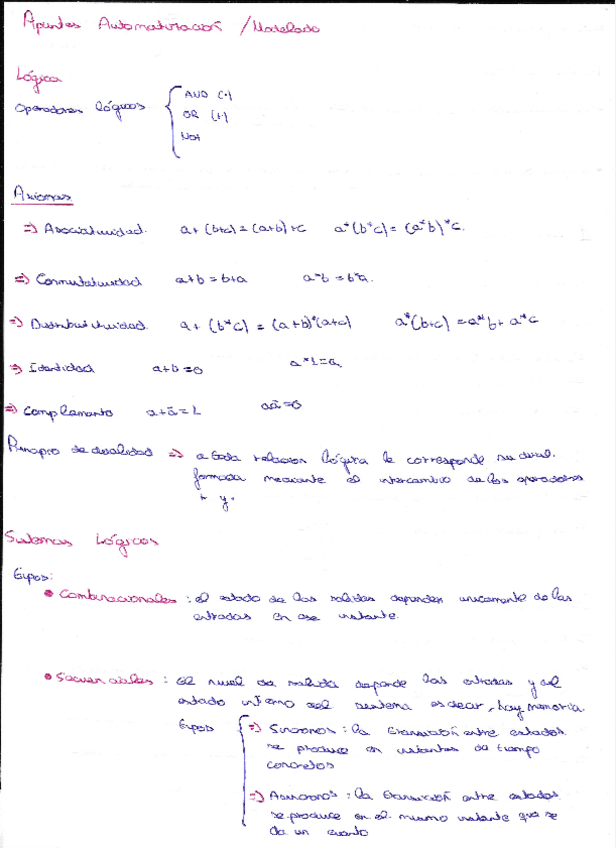 Apuntes Automatización / Modelado
Lógica
Operadores lógicos { AND (·)
OR (+)
NOT
Axiomas
=> Asociatividad. a+(b+c)=(a+b)+c a*(b*c)=(a*b)*c.
=> Conmutatividad a+b=b+a a*b=b*a.
=> Distributividad a+(b*c)=(a+b)*(a+c) a*(b+c)=a*b+a*c
=> Identidad a+b=0 a*1=a
=> Complemento a+ā=1 aā=0
Principio de dualidad => a toda relación lógica le corresponde su dual.
formada mediante el intercambio de los operadores
+ y ·
Sistemas Lógicos
Tipos:
• Combinacionales: el estado de las salidas dependen unicamente de las
entradas en ese instante.
• Secuenciales: el nivel de salida depende las entradas y del
estado interno del sistema es decir, hay memoria.
Tipos { => Sincronos: la transición entre estados
se produce en instantes de tiempo
concretos
=> Asincronos: la transición entre estados
se produce en el mismo instante que se
da un evento